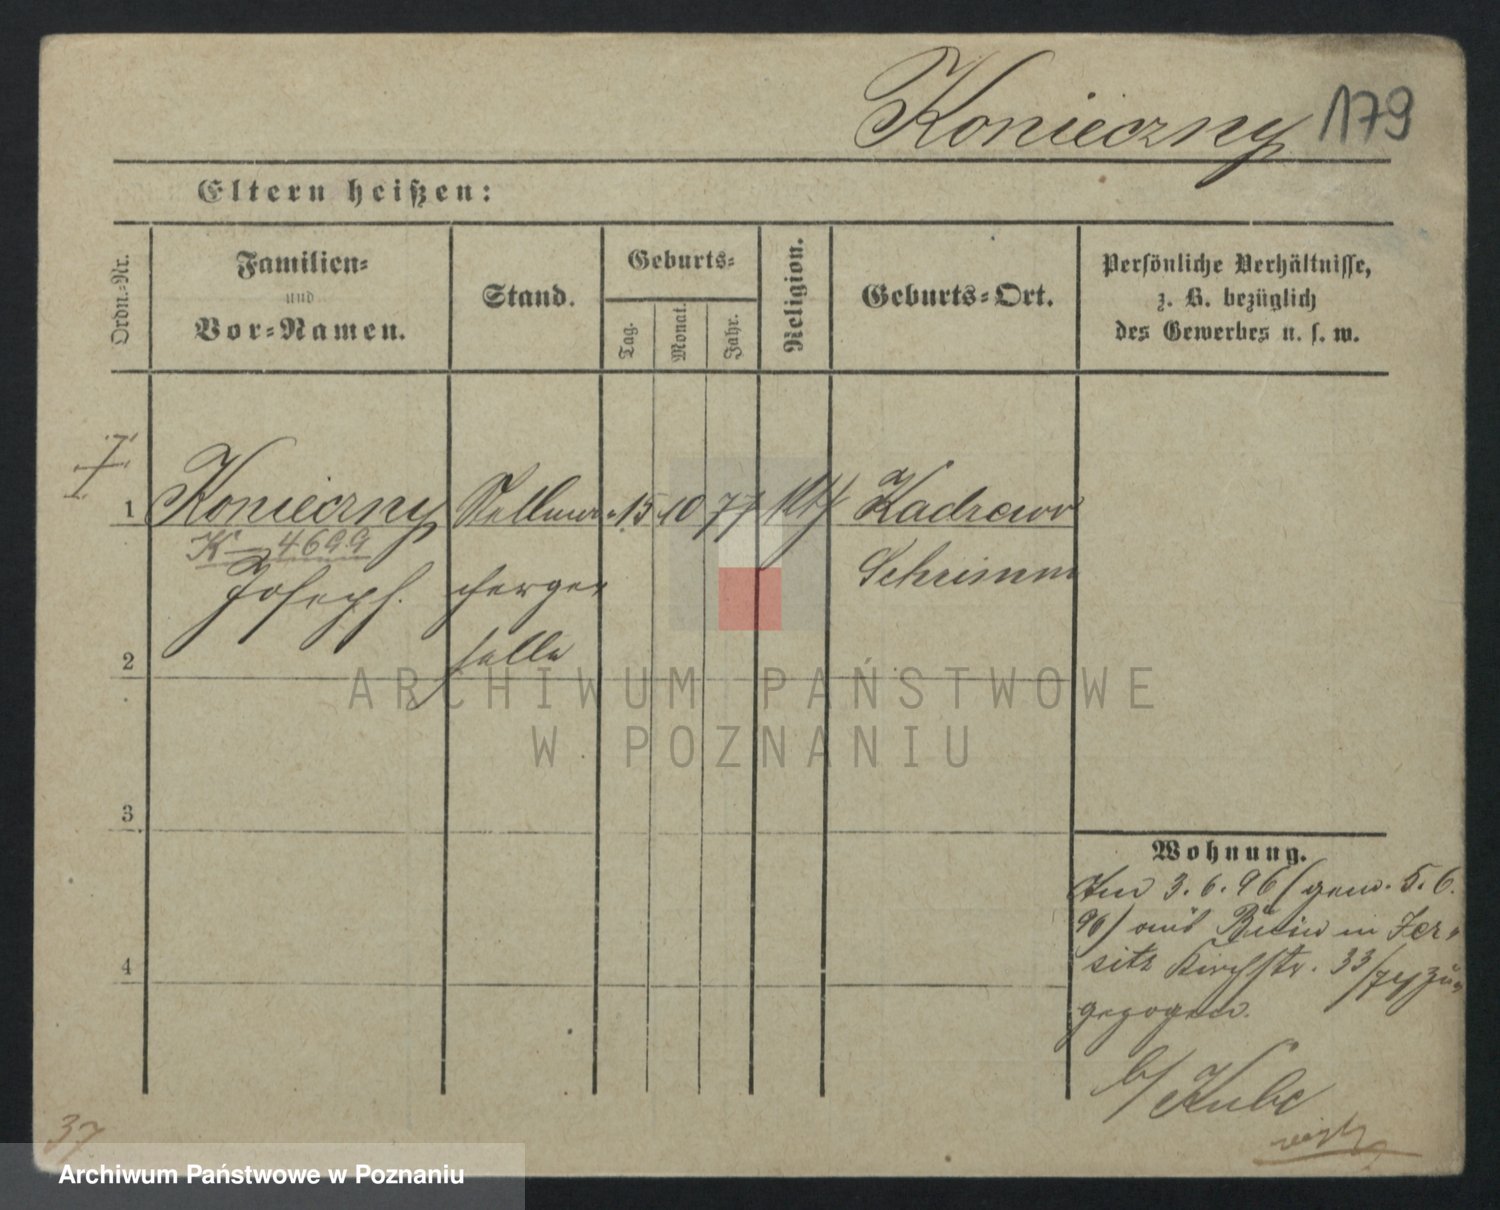 Konieczny 179
Eltern heißen:
Ordn.-Nr.
Familien-
und
Vor-Namen.
Stand.
Geburts-
Tag.
Monat.
Jahr.
Religion.
Geburts-Ort.
Persönliche Verhältnisse,
z. B. bezüglich
des Gewerbes u. s. w.
1 Konieczny Stellma- 15 10 77 kth Zadzewo
K - 4699
Joseph. chergeselle Schrimm
2
3
4
Wohnung.
Am 3.6.96 (gem. 5.6.
96) aus Bnin in Jer-
sitz Kirchstr. 33/34 zu-
gezogen.
b/ Kube
37
ARCHIWUM PAŃSTWOWE
W POZNANIU
Archiwum Państwowe w Poznaniu